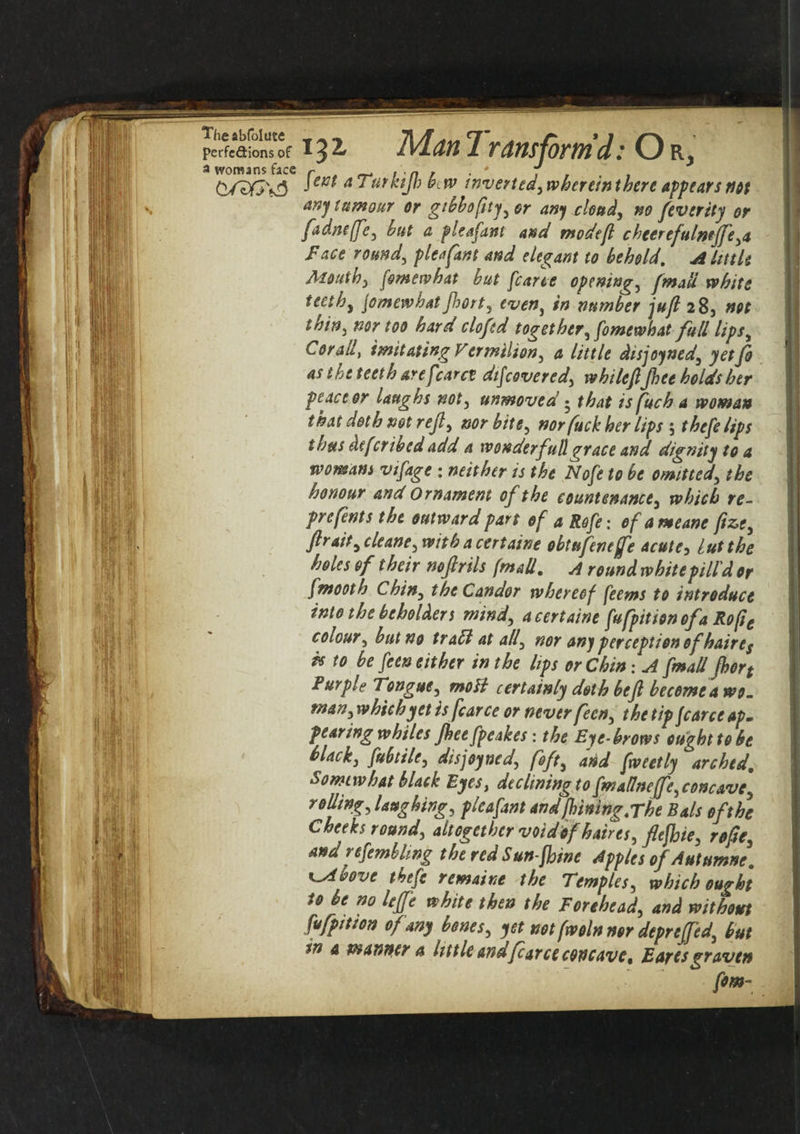 The absolute
perfections of
a womans face
132 Man Transform'd: OR,
sent a Turkish bow inverted, wherein there appears not
any tumour or gibbosity, or any cloud, no severity or
sadnesse, but a pleasant and modest cheerefulnesse, a
Face round, pleasant and elegant to behold. A little
Mouth, somewhat but scarce opening, small white
teeth, somewhat short, even, in number just 28, not
thin, nor too hard closed together, somewhat full lips,
Corall, imitating Vermilion, a little disjoyned, yet so
as the teeth are scarce discovered, whilest shee holds her
peace or laughs not, unmoved; that is such a woman
that doth not rest, nor bite, nor suck her lips; these lips
thus described add a wonderfull grace and dignity to a
womans visage: neither is the Nose to be omitted, the
honour and Ornament of the countenance, which re-
presents the outward part of a Rose: of a meane size,
strait, cleane, with a certaine obtusenesse acute, but the
holes of their nostrils small. A round white pill'd or
smooth Chin, the Candor whereof seems to introduce
into the beholders mind, a certaine suspition of a Rosie
colour, but no tract at all, nor any perception of haires
is to be seen either in the lips or Chin: A small short
Purple Tongue, most certainly doth best become a wo-
man, which yet is scarce or never seen, the tip scarce ap-
pearing whiles shee speakes: the Eye-brows ought to be
black, subtile, disjoyned, soft, and sweetly arched.
Somewhat black Eyes, declining to smallnesse, concave,
rolling, laughing, pleasant and shining. The Bals of the
Cheeks round, altogether void of haires, fleshie, rosie,
and resembling the red Sun-shine Apples of Autumne.
Above these remaine the Temples, which ought
to be no lesse white then the Forehead, and without
suspition of any bones, yet not swoln nor depressed, but
in a manner a little and scarce concave. Eares graven
som-